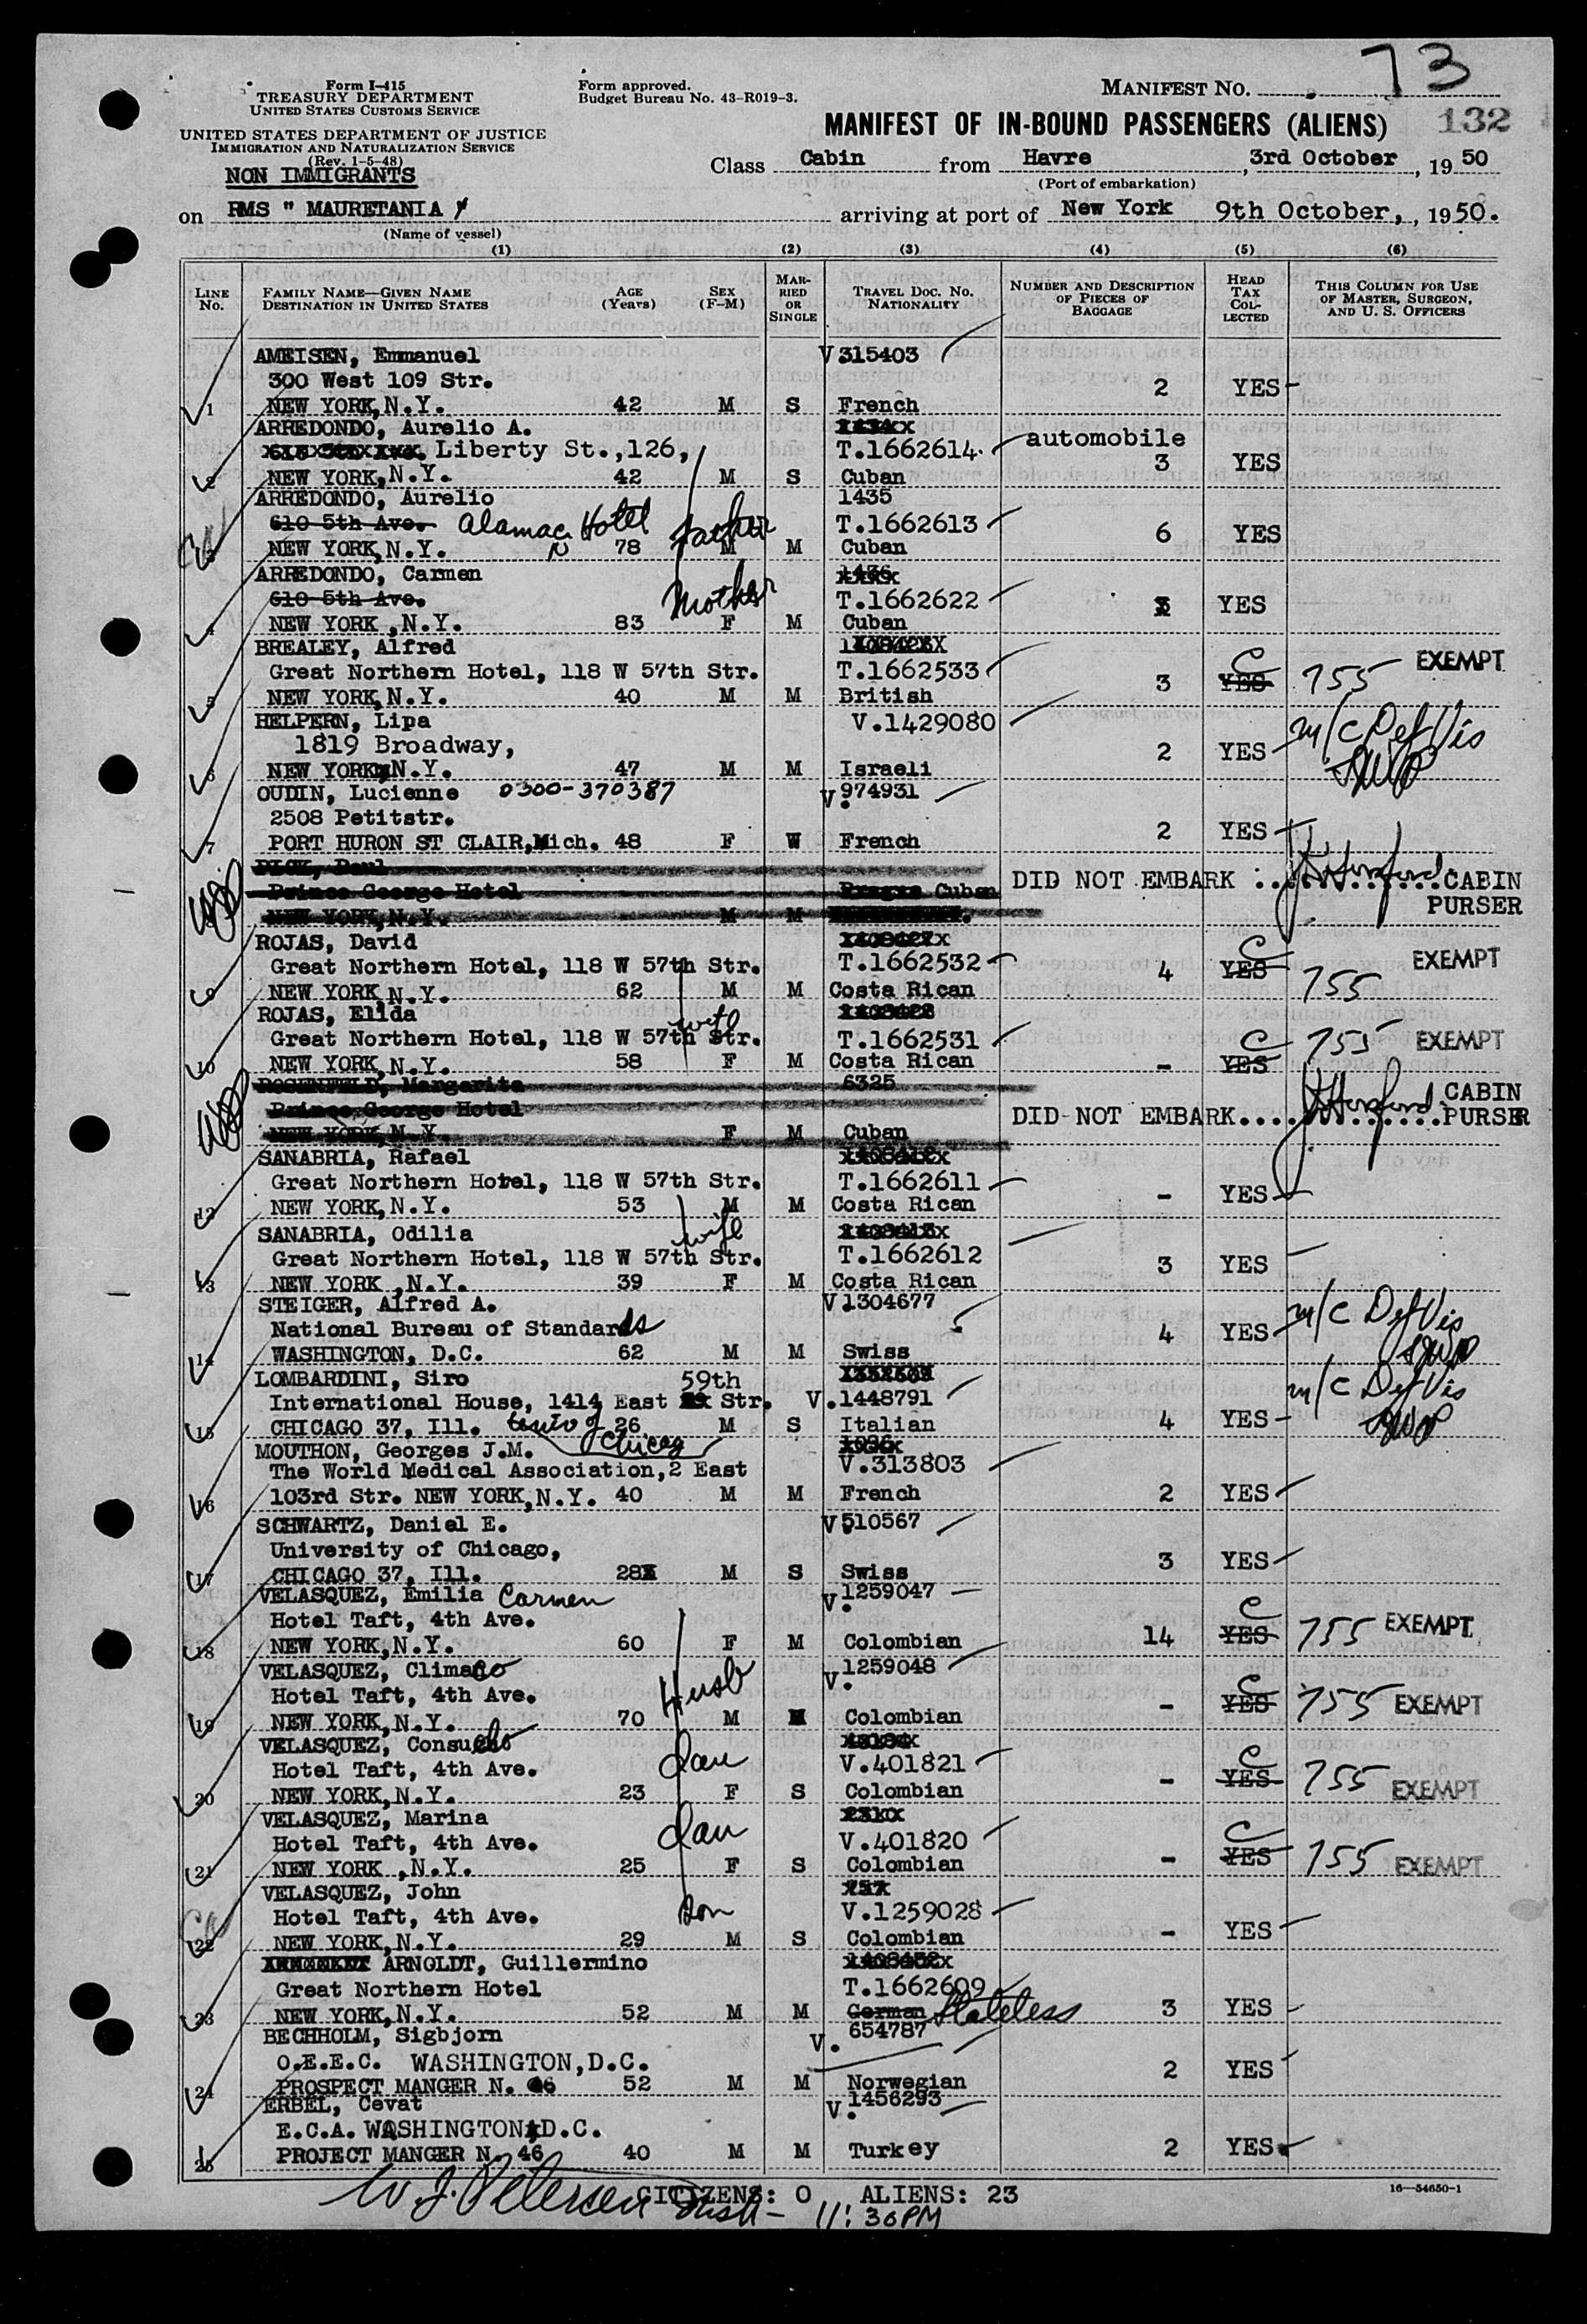 73
Form I-415
TREASURY DEPARTMENT
UNITED STATES CUSTOMS SERVICE
Form approved.
Budget Bureau No. 43-R019-3.
MANIFEST NO.
132
UNITED STATES DEPARTMENT OF JUSTICE
IMMIGRATION AND NATURALIZATION SERVICE
(Rev. 1-5-48)
NON IMMIGRANTS
MANIFEST OF IN-BOUND PASSENGERS (ALIENS)
Class Cabin from Havre, 3rd October, 1950
(Port of embarkation)
on RMS " MAURETANIA arriving at port of New York 9th October,, 1950.
(Name of vessel)
(1) (2) (3) (4) (5) (6)
LINE No.
FAMILY NAME—GIVEN NAME
DESTINATION IN UNITED STATES
AGE (Years)
SEX (F-M)
MARRIED OR SINGLE
TRAVEL DOC. NO.
NATIONALITY
NUMBER AND DESCRIPTION OF PIECES OF BAGGAGE
HEAD TAX COLLECTED
THIS COLUMN FOR USE OF MASTER, SURGEON, AND U. S. OFFICERS
AMEISEN, Emmanuel V 315403
300 West 109 Str. 2 YES
1 NEW YORK,N.Y. 42 M S French
ARREDONDO, Aurelio A.
Liberty St.,126, T.1662614. automobile 3 YES
2 NEW YORK,N.Y. 42 M S Cuban
ARREDONDO, Aurelio 1435
610 5th Ave. Alamac Hotel father T.1662613 6 YES
3 NEW YORK,N.Y. 78 M M Cuban
ARREDONDO, Carmen 1436
610 5th Ave. Mother T.1662622 YES
4 NEW YORK ,N.Y. 83 F M Cuban
BREALEY, Alfred
Great Northern Hotel, 118 W 57th Str. T.1662533 3 YES C 755 EXEMPT
5 NEW YORK,N.Y. 40 M M British
HELPERN, Lipa V.1429080
1819 Broadway, 2 YES m/c Def Vis
6 NEW YORK N.Y. 47 M M Israeli
OUDIN, Lucienne 0300-370387 V.974931
2508 Petitstr. 2 YES
7 PORT HURON ST CLAIR,Mich. 48 F W French
PICK, Paul
Prince George Hotel Cuban DID NOT EMBARK :......... CABIN PURSER
NEW YORK,N.Y. M M
ROJAS, David
Great Northern Hotel, 118 W 57th Str. T.1662532 4 YES C 755 EXEMPT
9 NEW YORK,N.Y. 62 M M Costa Rican
ROJAS, Elida wife
Great Northern Hotel, 118 W 57th Str. T.1662531 - YES C 755 EXEMPT
10 NEW YORK,N.Y. 58 F M Costa Rican
ROSENFELD, Margarita 6325
Prince George Hotel DID NOT EMBARK............. CABIN PURSER
NEW YORK,N.Y. F M Cuban
SANABRIA, Rafael
Great Northern Hotel, 118 W 57th Str. T.1662611 - YES
12 NEW YORK,N.Y. 53 M M Costa Rican
SANABRIA, Odilia wife
Great Northern Hotel, 118 W 57th Str. T.1662612 3 YES
13 NEW YORK ,N.Y. 39 F M Costa Rican
STEIGER, Alfred A. V 1304677
National Bureau of Standards 4 YES m/c Def Vis
14 WASHINGTON, D.C. 62 M M Swiss
LOMBARDINI, Siro 59th
International House, 1414 East Str. V.1448791 4 YES m/c Def Vis
15 CHICAGO 37, Ill. Univ of Chicag 26 M S Italian
MOUTHON, Georges J.M.
The World Medical Association,2 East V.313803
16 103rd Str. NEW YORK,N.Y. 40 M M French 2 YES
SCHWARTZ, Daniel E. V 510567
University of Chicago, 3 YES
17 CHICAGO 37, Ill. 28 M S Swiss
VELASQUEZ, Emilia Carmen V.1259047
Hotel Taft, 4th Ave. 14 YES C 755 EXEMPT
18 NEW YORK,N.Y. 60 F M Colombian
VELASQUEZ, Climaco V.1259048
Hotel Taft, 4th Ave. Husb - YES C 755 EXEMPT
19 NEW YORK,N.Y. 70 M M Colombian
VELASQUEZ, Consuelo
Hotel Taft, 4th Ave. dau V.401821 - YES C 755 EXEMPT
20 NEW YORK,N.Y. 23 F S Colombian
VELASQUEZ, Marina
Hotel Taft, 4th Ave. dau V.401820 - YES C 755 EXEMPT
21 NEW YORK ,N.Y. 25 F S Colombian
VELASQUEZ, John
Hotel Taft, 4th Ave. son V.1259028 - YES
22 NEW YORK,N.Y. 29 M S Colombian
ARNOLDT, Guillermino
Great Northern Hotel T.1662609
23 NEW YORK,N.Y. 52 M M German Stateless 3 YES
BECHHOLM, Sigbjorn V. 654787
O.E.E.C. WASHINGTON,D.C. 2 YES
24 PROSPECT MANGER N. 46 52 M M Norwegian
ERBEL, Cevat V.1456293
E.C.A. WASHINGTON,D.C.
25 PROJECT MANGER N. 46 40 M M Turkey 2 YES
W. J. Petersen CITIZENS: 0 ALIENS: 23
11:30PM
16—54650-1